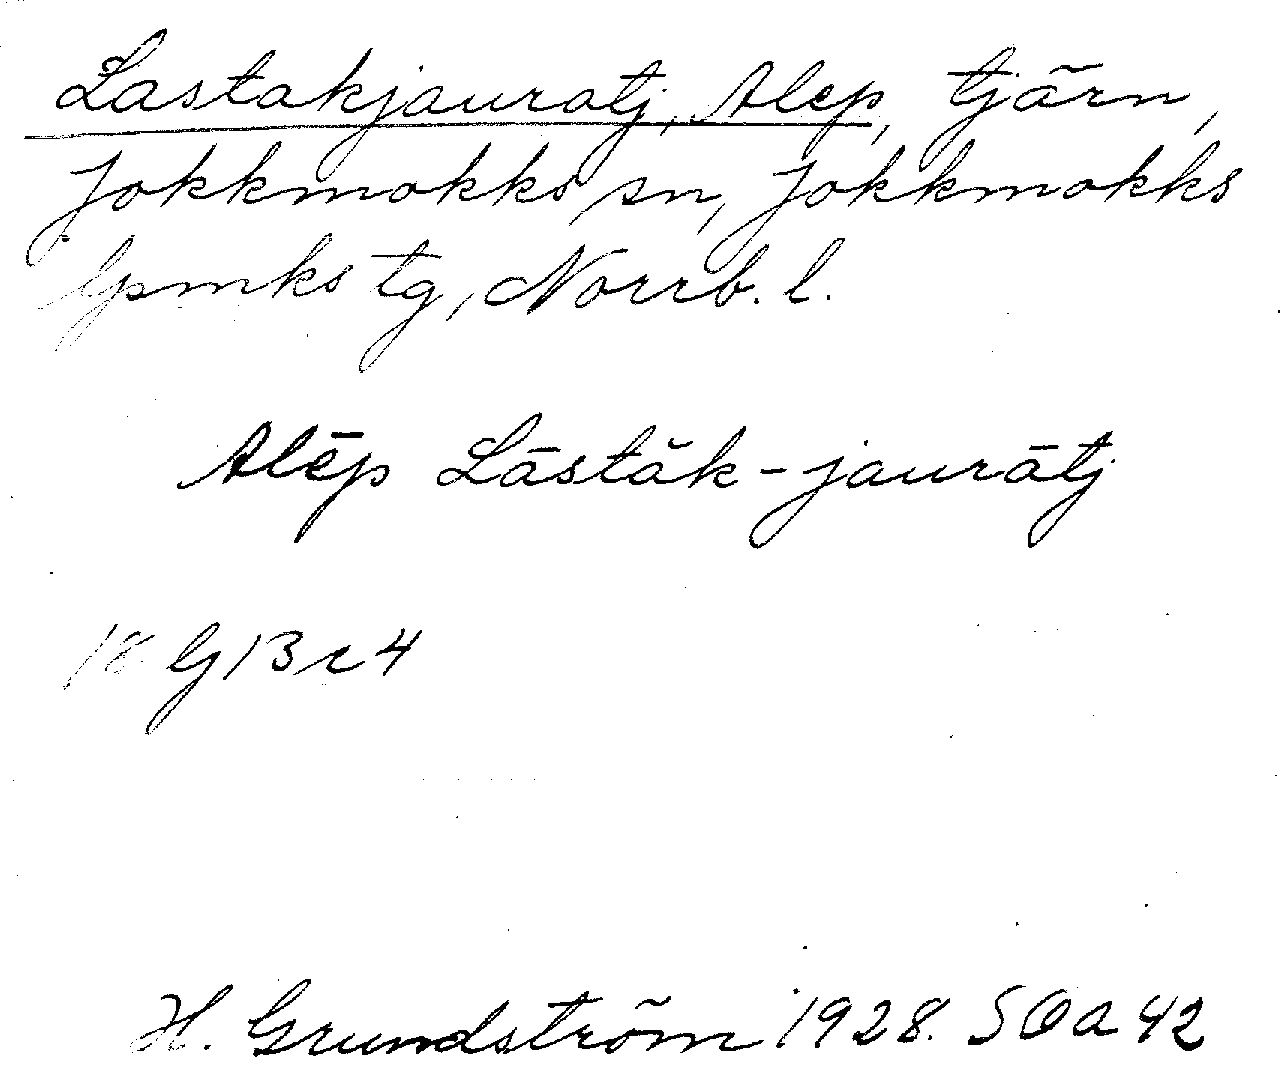 Lastakjauratj, Alep, tjärn,
Jokkmokks sn, Jokkmokks
lpmks tg, Norrb. l.
Alēp Lāstăk-jaurātj
18 G 13 r 4
H. Grundström 1928. SOa 42